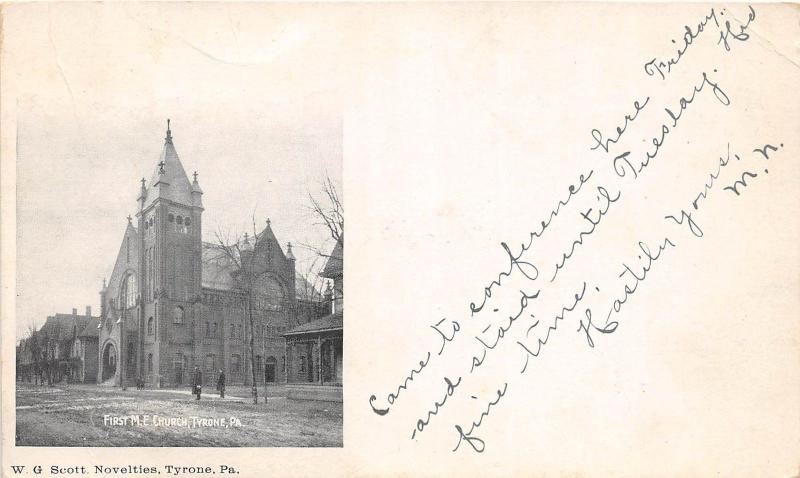 Came to conference here Friday.
and staid until Tuesday. Had
fine time.
Hastily Yours,
M. N.
FIRST M.E. CHURCH, TYRONE, PA.
W. G Scott. Novelties, Tyrone, Pa.